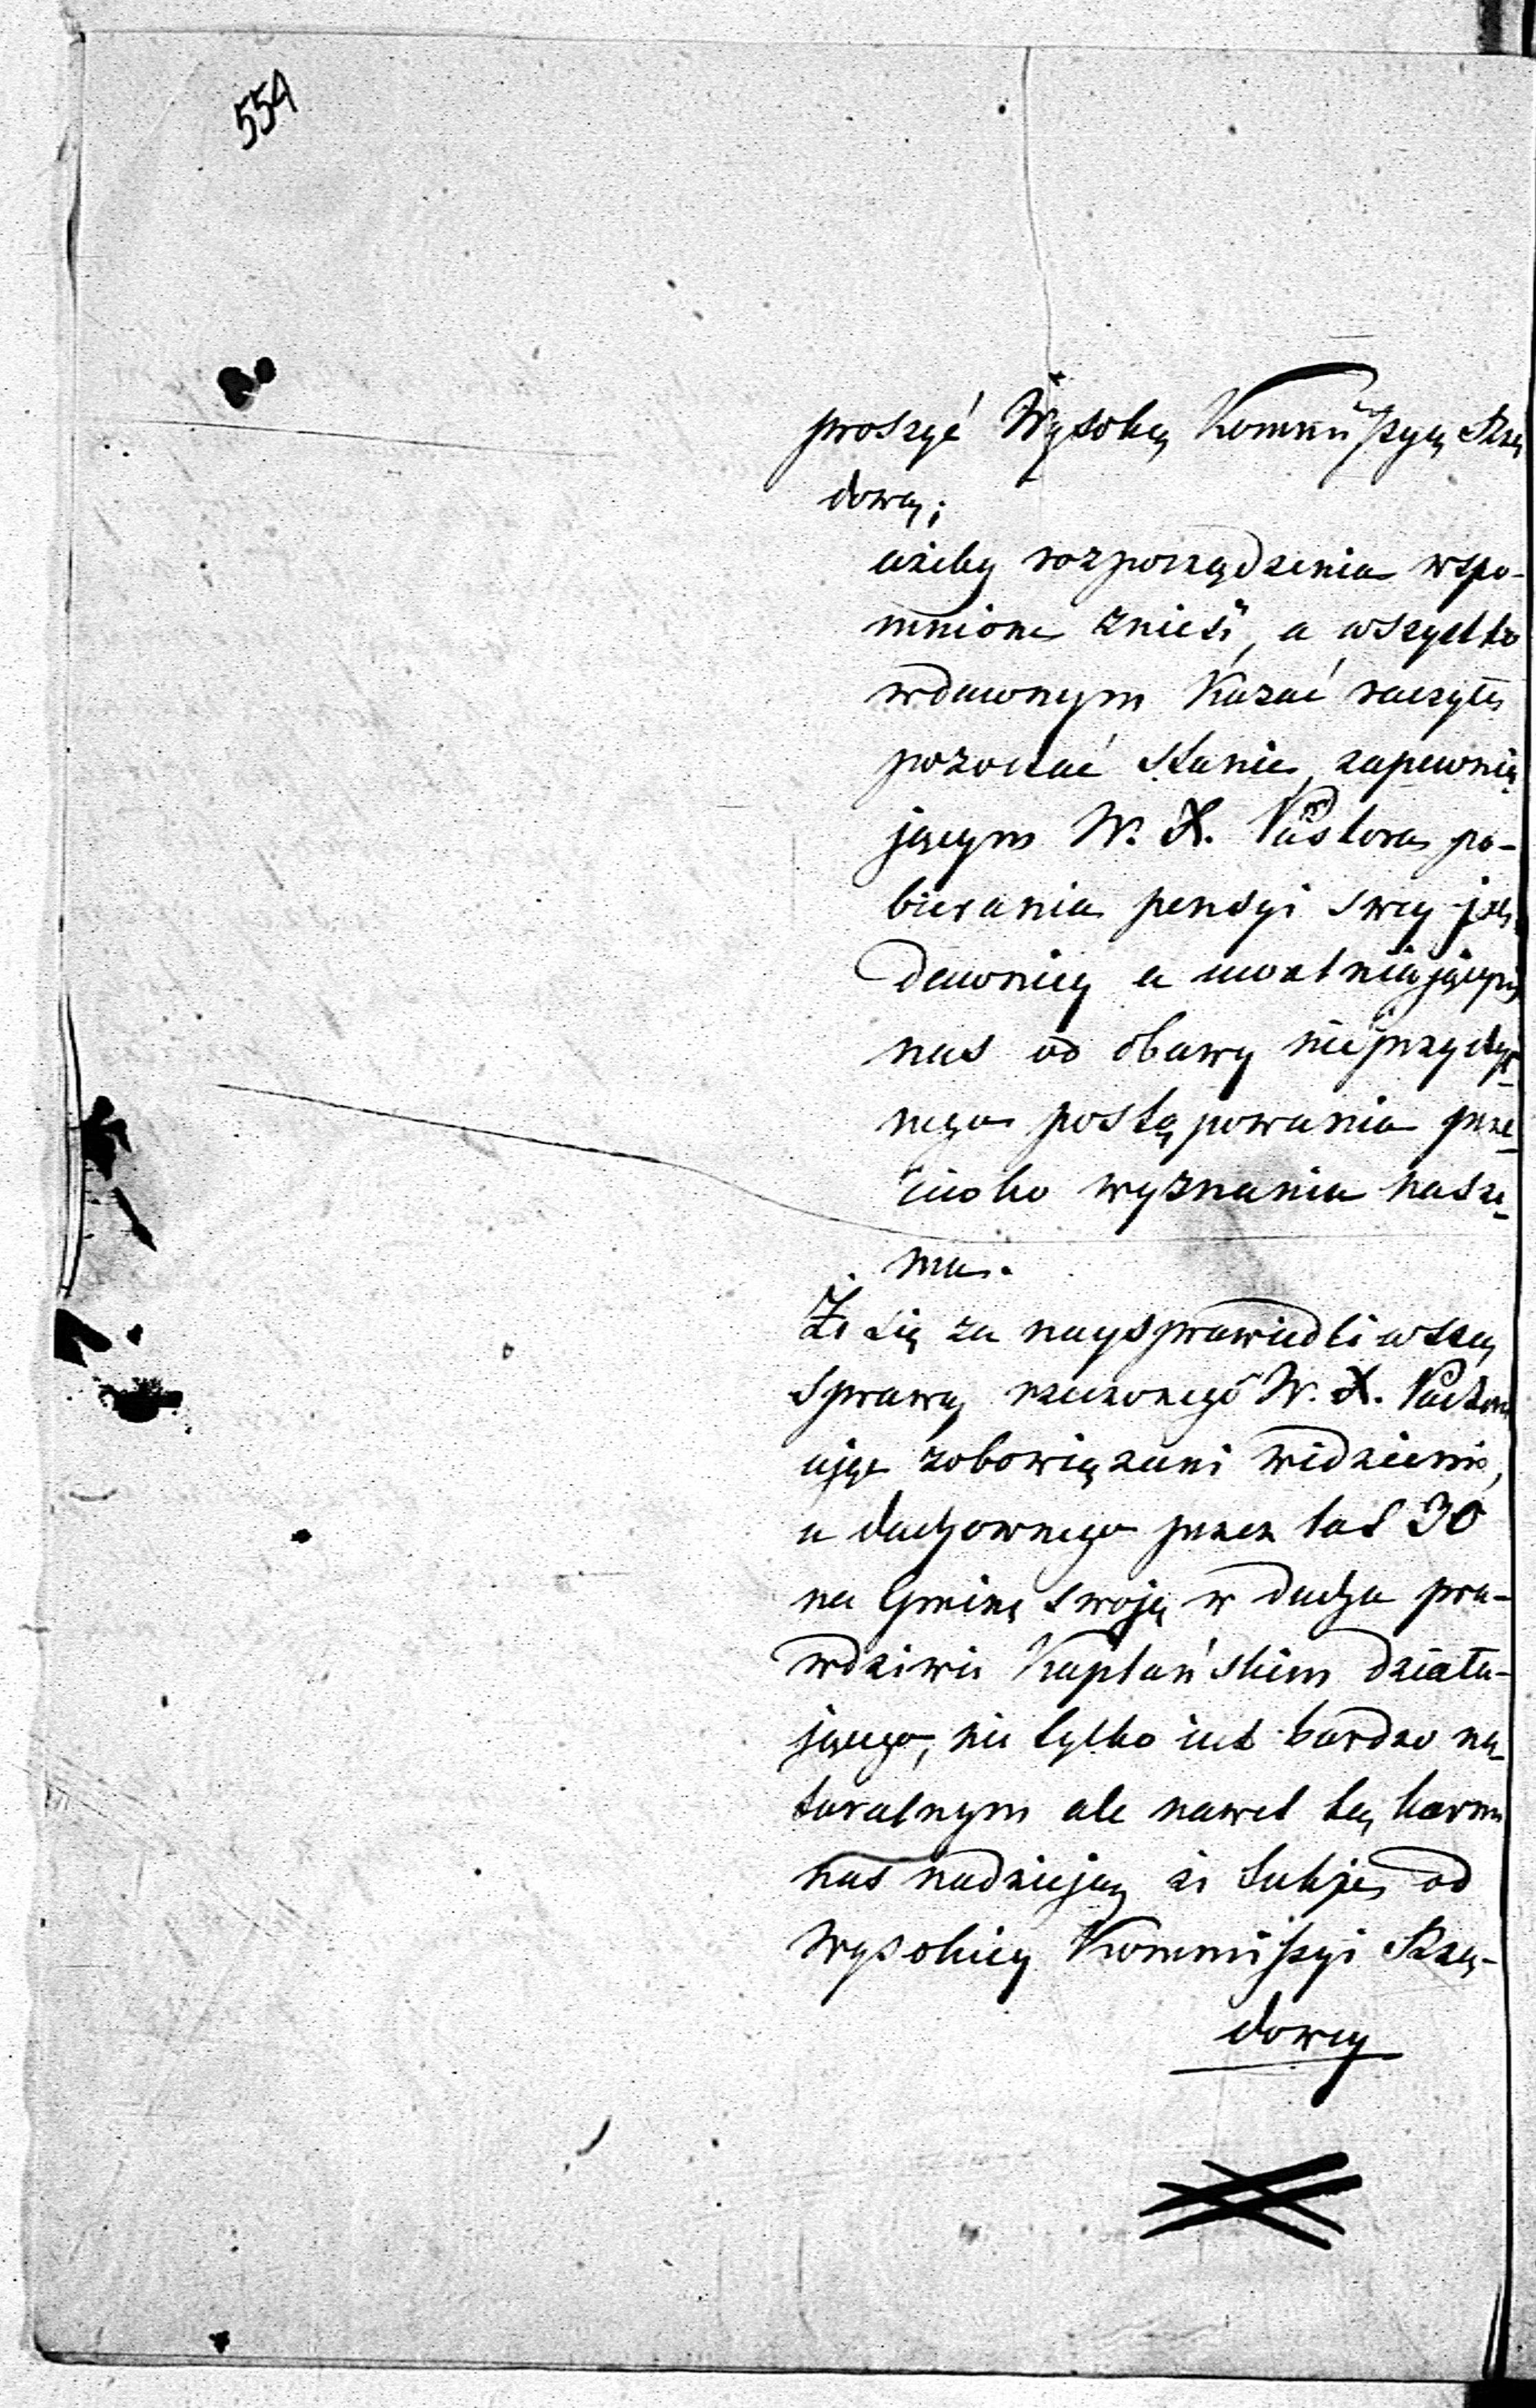 554
proszyć Wysoką Kommissyą Rzą
dową;
ażeby rozporządzenia wspo-
mnione znieść, a wszystko
w dawnym kazać raczyła
pozostać stanie, zapewnia
jącym W. X. Pastora po-
bierania pensyi swey jak
dawniey a uwalniającym
nas od obawy nieprzychyl-
nego postępowania prze-
ciwko wyznaniu nasze-
mu.
Że się za naysprawiedliwszą
sprawą rzeczonego W. X. Pastora
ując zobowiązani widziemy,
a duchownego przez lat 30
na Gminę swoję w duchu pra-
wdziwie Kapłańskim działa-
jącego, nie tylko iest bardzo na-
turalnym ale nawet tą karmi
nas nadzieją że takje od
Wysokiey Kommissyi Rzą-
dowey